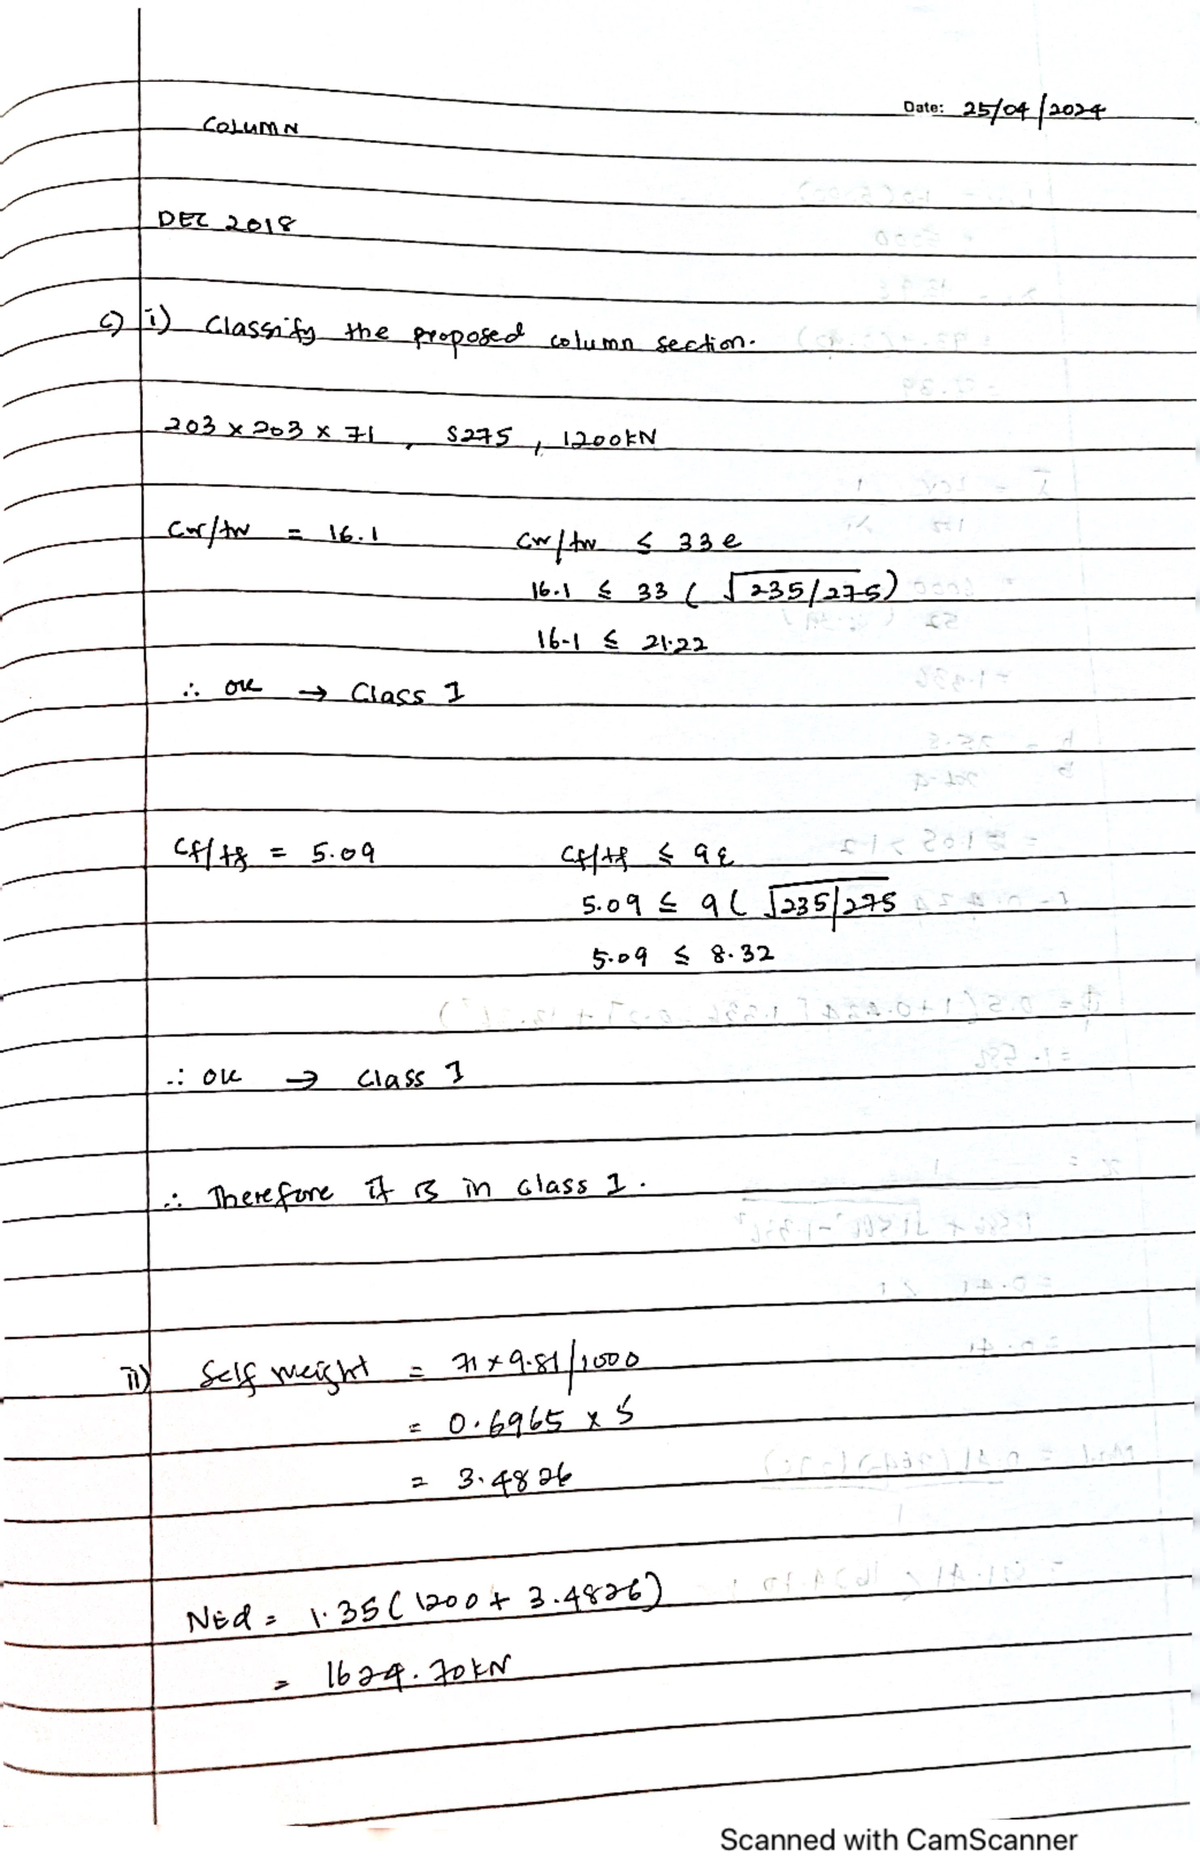 Date: 25/04/2024
COLUMN
DEC 2018
c) i) Classify the proposed column section.
203 x 203 x 71 , S275 , 1200KN
Cw/tw = 16.1 Cw/tw ≤ 33 e
16.1 ≤ 33 ( √235/275)
16.1 ≤ 21.22
∴ ok → Class 1
Cf/tf = 5.09 Cf/tf ≤ 9ε
5.09 ≤ 9( √235/275
5.09 ≤ 8.32
∴ ok → Class 1
∴ Therefore it is in class 1.
ii) Self weight = 71 x 9.81/1000
= 0.6965 x 5
= 3.4826
NEd = 1.35 ( 1200 + 3.4826)
= 1624.70KN
Scanned with CamScanner